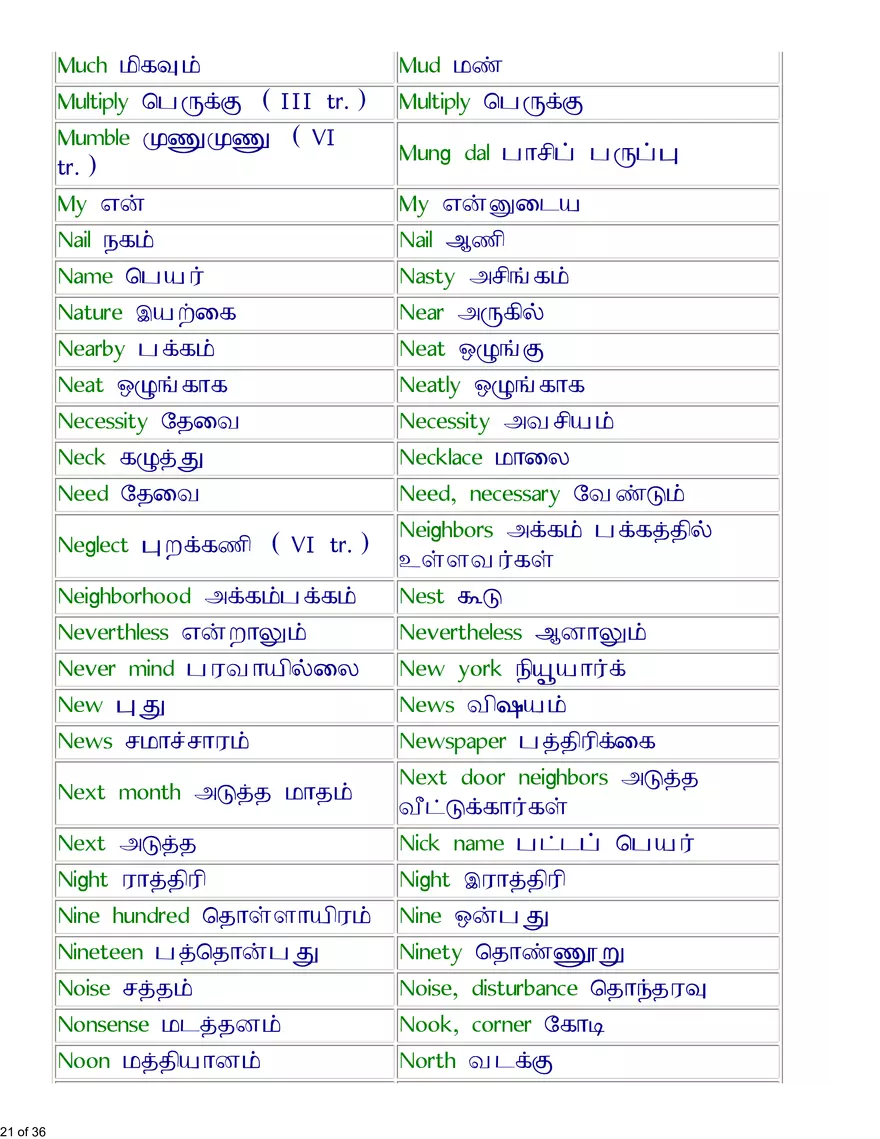 Much மிகவும்
Mud மண்
Multiply பெருக்கு ( III tr. )
Multiply பெருக்கு
Mumble முணுமுணு ( VI
tr. )
Mung dal பாசிப் பருப்பு
My என்
My என்னுடைய
Nail நகம்
Nail ஆணி
Name பெயர்
Nasty அசிங்கம்
Nature இயற்கை
Near அருகில்
Nearby பக்கம்
Neat ஒழுங்கு
Neat ஒழுங்காக
Neatly ஒழுங்காக
Necessity தேவை
Necessity அவசியம்
Neck கழுத்து
Necklace மாலை
Need தேவை
Need, necessary வேண்டும்
Neglect புறக்கணி ( VI tr. )
Neighbors அக்கம் பக்கத்தில்
உள்ளவர்கள்
Neighborhood அக்கம்பக்கம்
Nest கூடு
Neverthless என்றாலும்
Nevertheless ஆனாலும்
Never mind பரவாயில்லை
New york நியூயார்க்
New புது
News விஷயம்
News சமாச்சாரம்
Newspaper பத்திரிக்கை
Next month அடுத்த மாதம்
Next door neighbors அடுத்த
வீட்டுக்கார்கள்
Next அடுத்த
Nick name பட்டப் பெயர்
Night ராத்திரி
Night இராத்திரி
Nine hundred தொள்ளாயிரம்
Nine ஒன்பது
Nineteen பத்தொன்பது
Ninety தொண்ணூறு
Noise சத்தம்
Noise, disturbance தொந்தரவு
Nonsense மடத்தனம்
Nook, corner கோடி
Noon மத்தியானம்
North வடக்கு
21 of 36